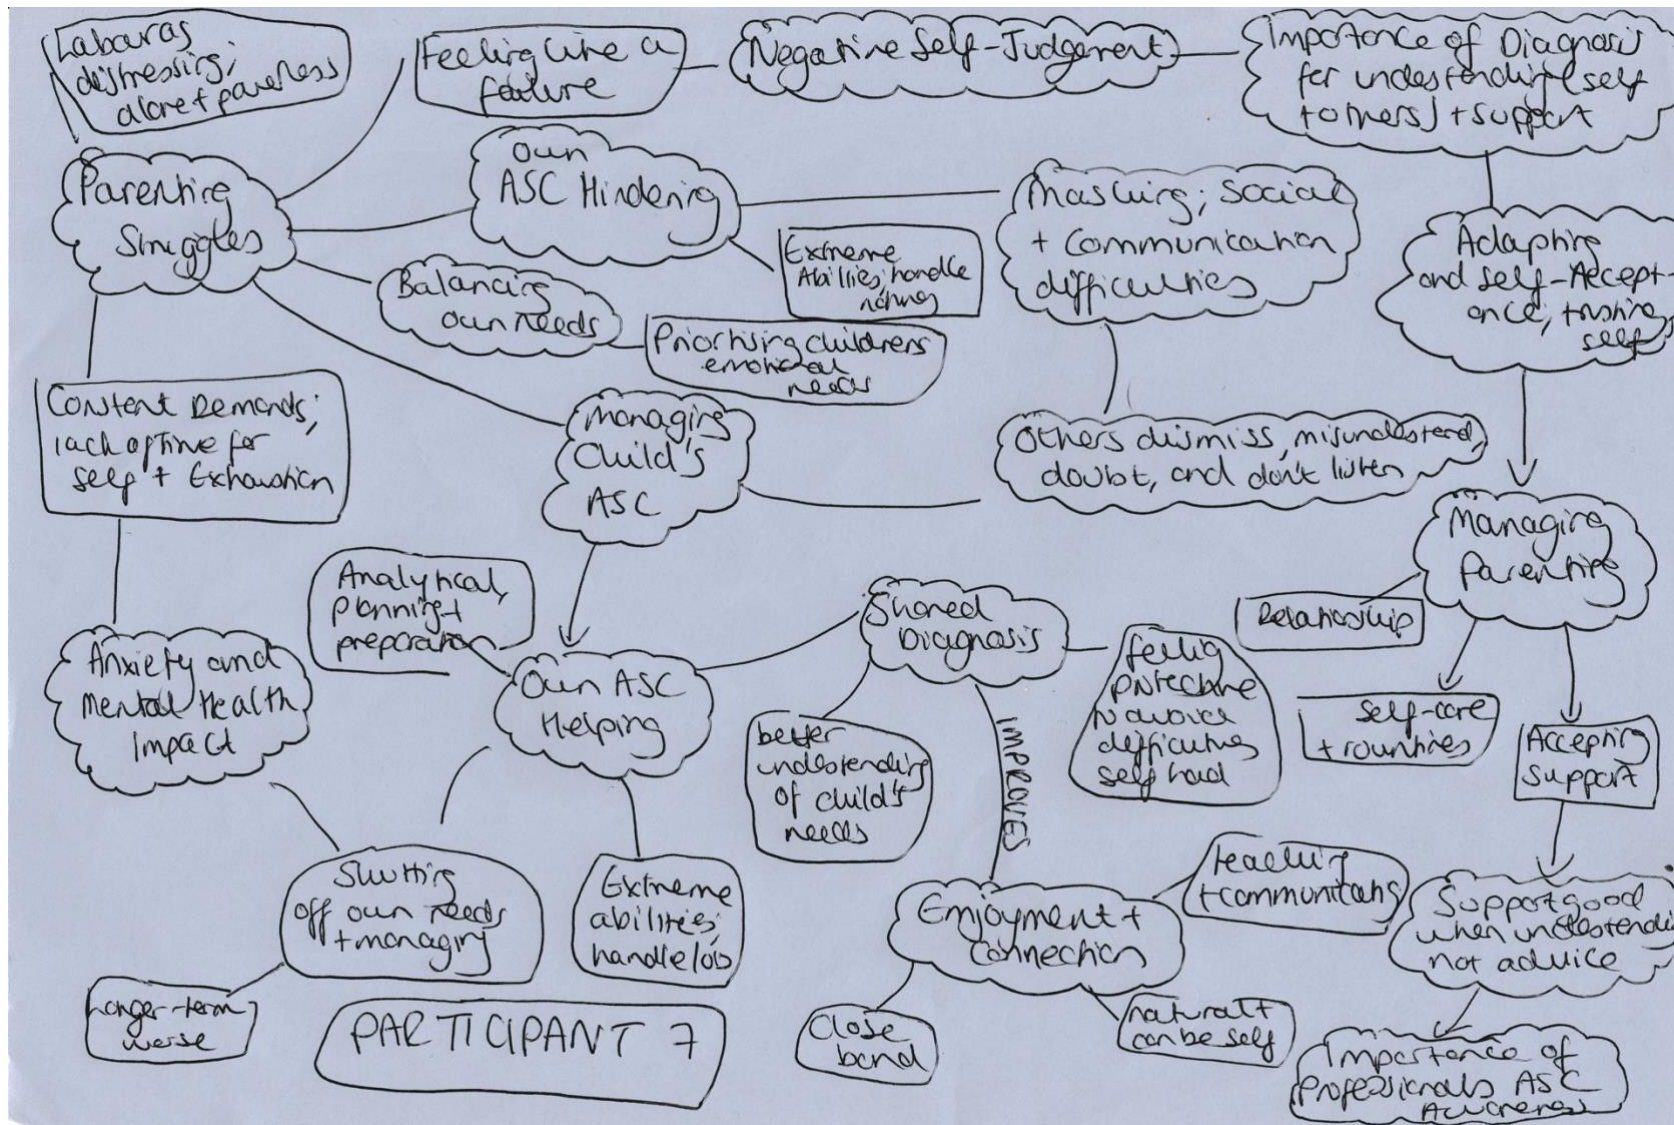 Labour as
distressing;
alone + powerless
Feeling like a
failure
Negative Self-Judgement
Importance of Diagnosis
for understanding (self
+ others) + support
Parenting
Struggles
Own
ASC Hindering
Extreme
Abilities; handle
nothing
Masking; social
+ communication
difficulties
Adapting
and self-Accept-
ance; trusting
self
Balancing
own needs
Prioritising childrens
emotional
needs
Constant Demands;
lack of time for
self + Exhaustion
Managing
Child's
ASC
Others dismiss, misunderstand,
doubt, and don't listen
Managing
Parenting
Relationship
self-care
+ routines
Accepting
support
Analytical,
planning +
preparation
Shared
Diagnosis
feeling
protective
to avoid
difficulties
self had
Anxiety and
Mental Health
Impact
Own ASC
Helping
better
understanding
of child's
needs
IMPROVES
Shutting
off own needs
+ managing
Extreme
abilities;
handle lots
Enjoyment +
Connection
teaching
+ communicating
Support good
when understanding
not advice
Longer-term
worse
PARTICIPANT 7
Close
bond
natural +
can be self
Importance of
Professionals ASC
Awareness